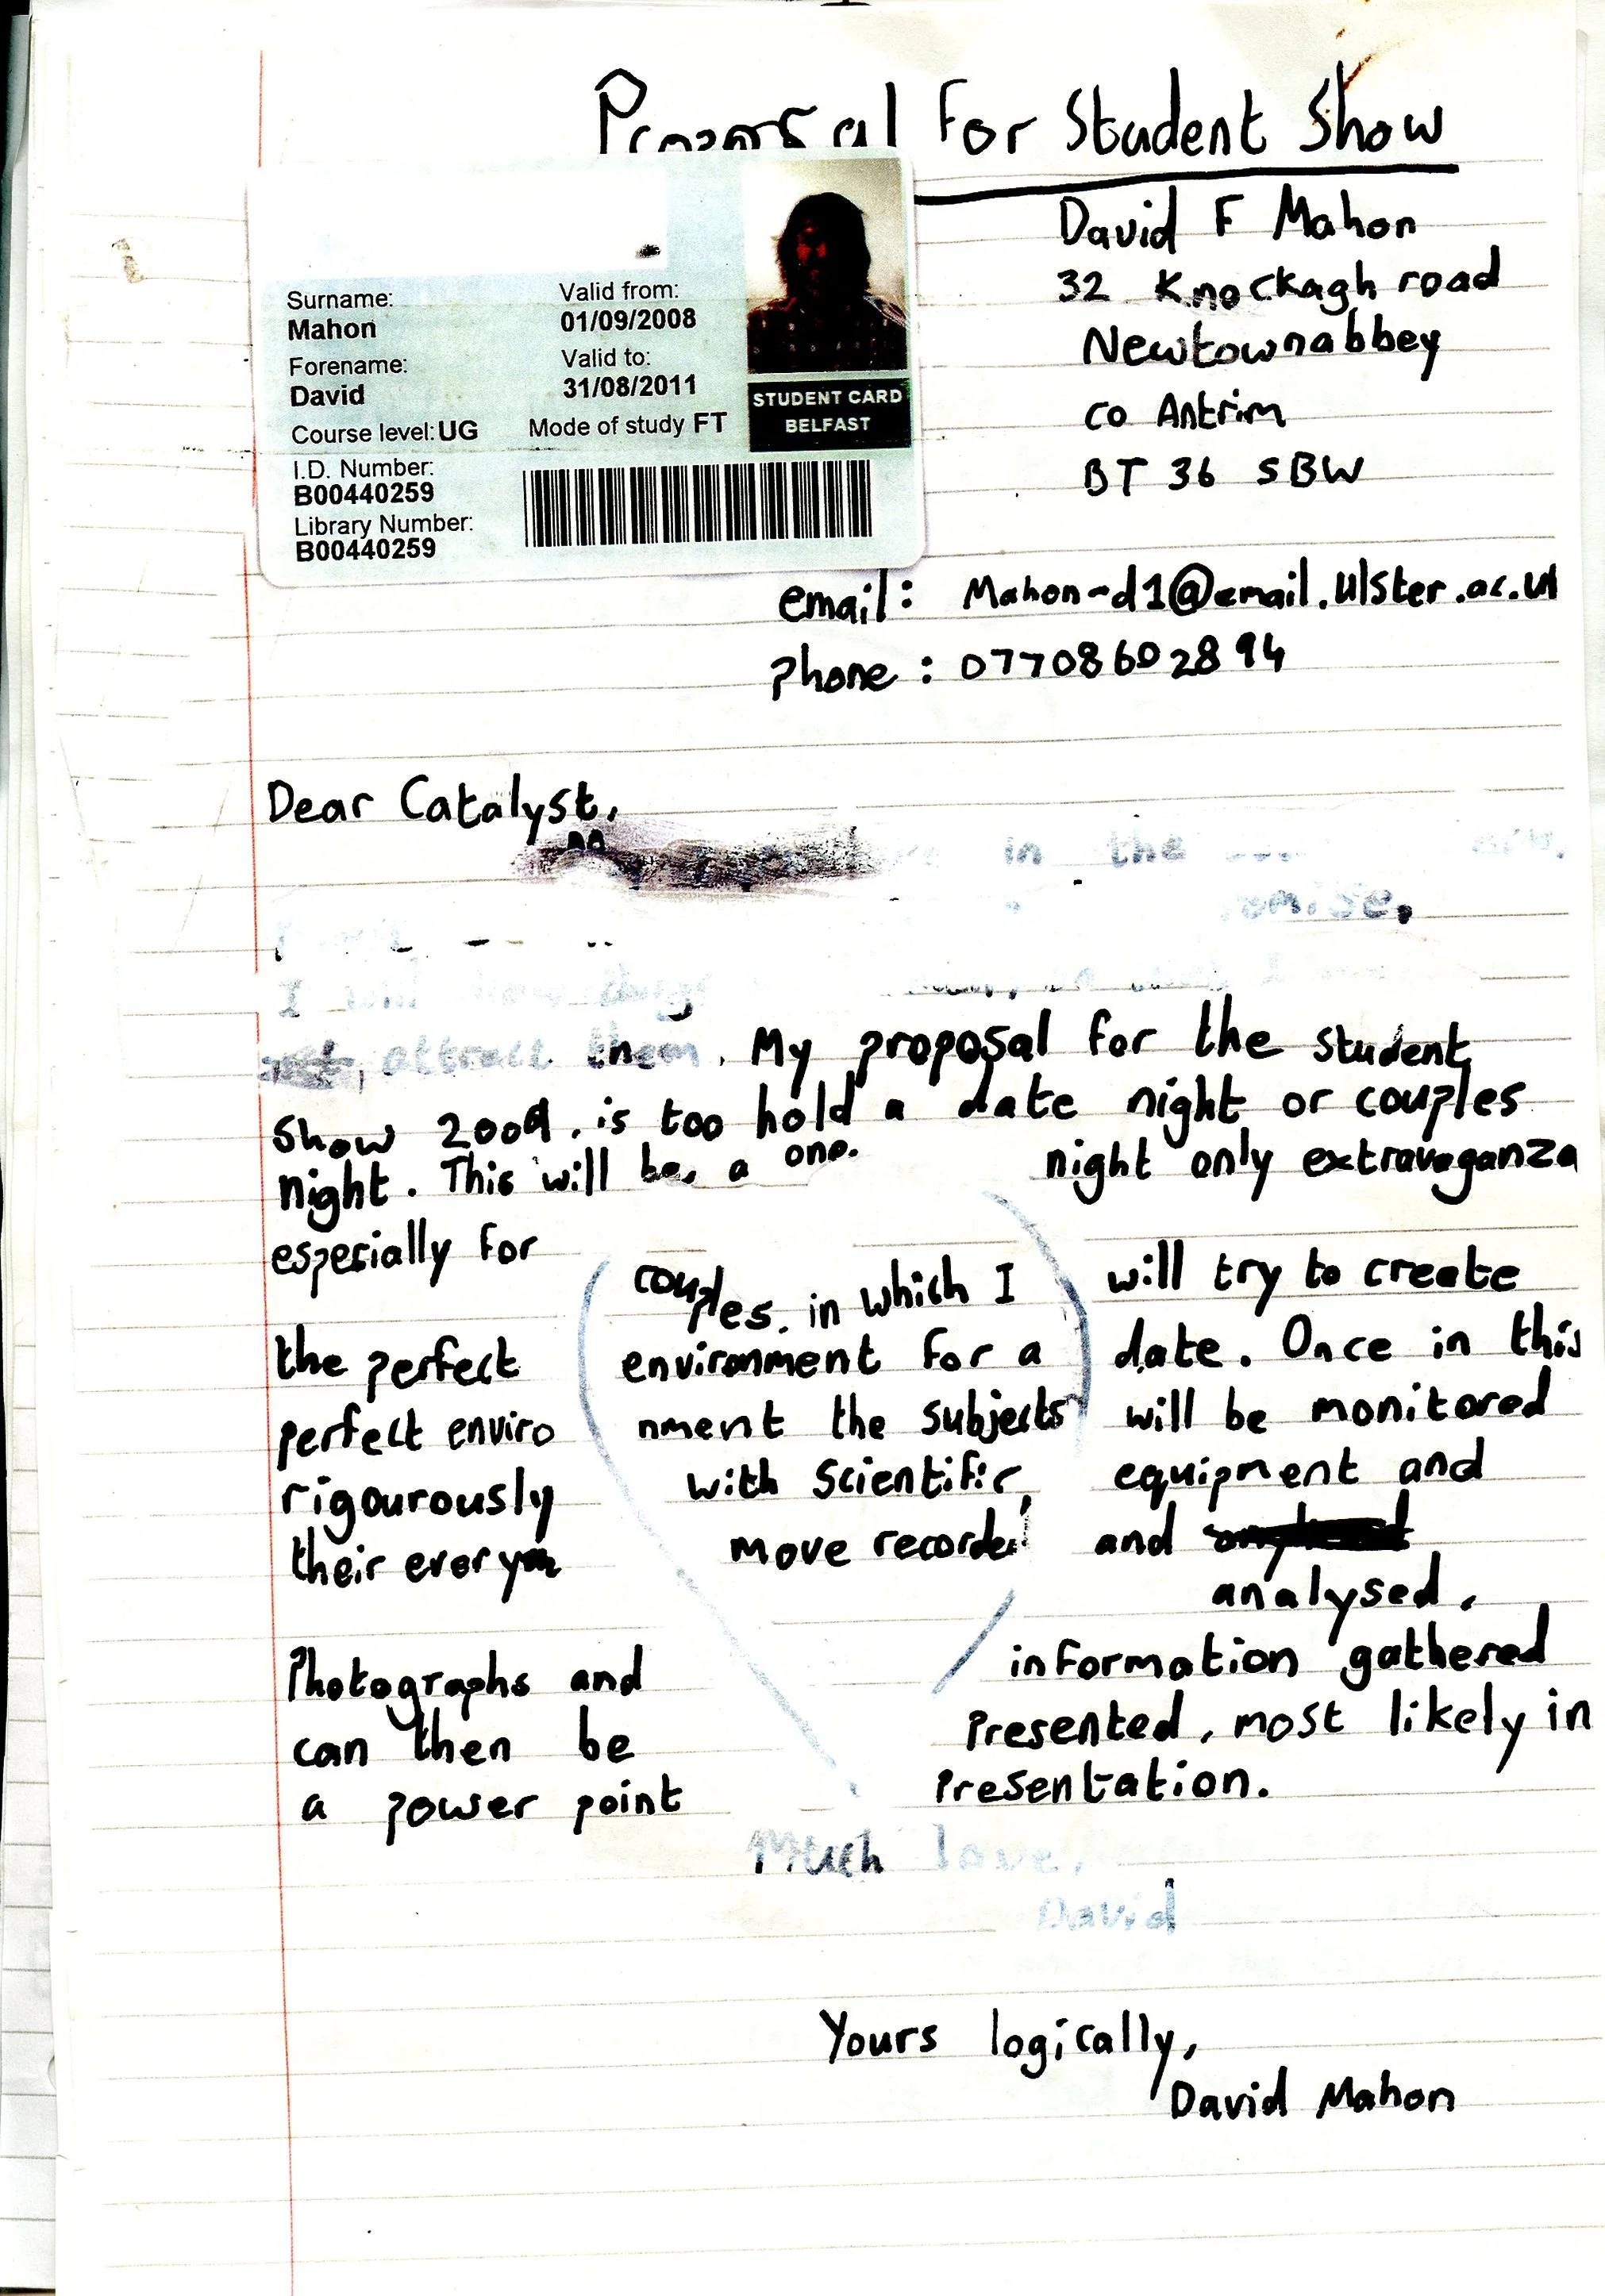 Proposal For Student Show
Surname:
Mahon
Forename:
David
Course level: UG
I.D. Number:
B00440259
Library Number:
B00440259
Valid from:
01/09/2008
Valid to:
31/08/2011
Mode of study FT
STUDENT CARD
BELFAST
David F Mahon
32 Knockagh road
Newtownabbey
co Antrim
BT 36 5BW
email: Mahon-d1@email.Ulster.ac.u
Phone: 07708602894
Dear Catalyst,
in the
I will
attract them. My proposal for the student
show 2009. is too hold a date night or couples
night. This will be a one. night only extravaganza
especially for
couples. in which I will try to create
the perfect environment for a date. Once in this
perfect enviro nment the subjects will be monitored
rigourously with scientific equipment and
their every move recorded and
analysed.
Photographs and information gathered
can then be Presented, most likely in
a power point Presentation.
Much love,
David
Yours logically,
David Mahon